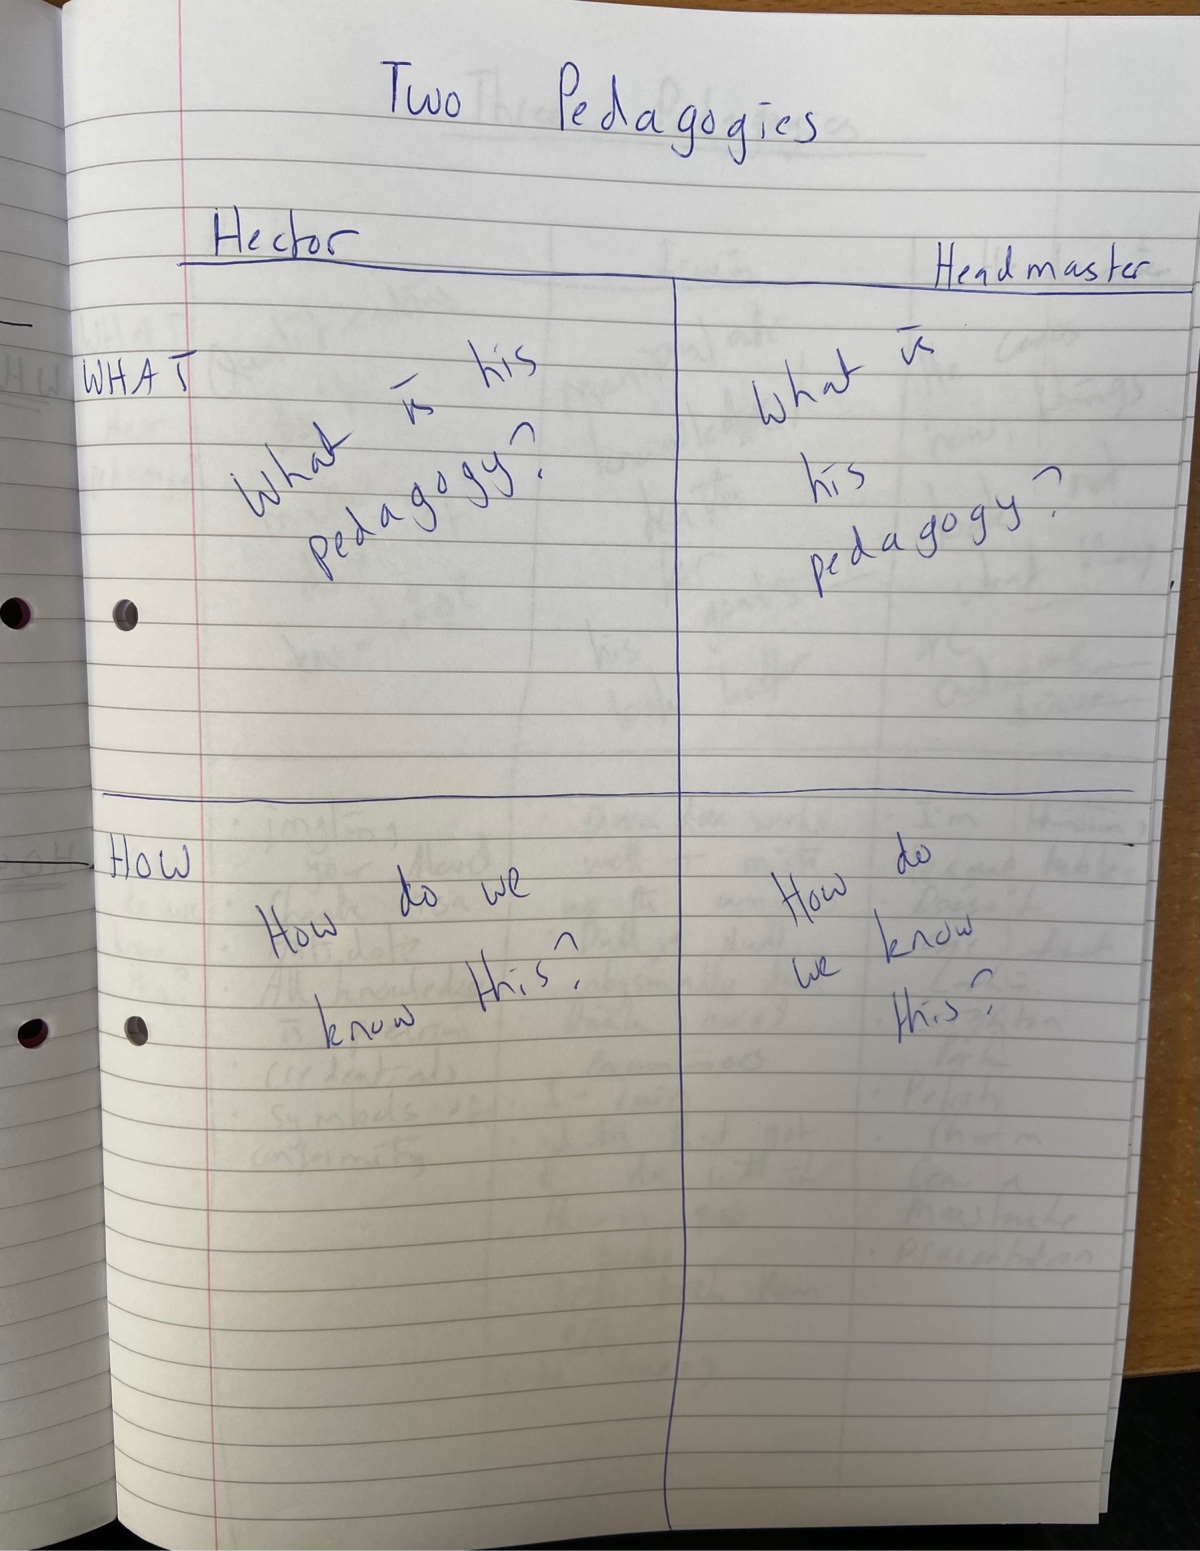 Two Pedagogies
Hector
Headmaster
WHAT
What is his
pedagogy?
What is
his
pedagogy?
HOW
How do we
know this?
How do
we know
this?